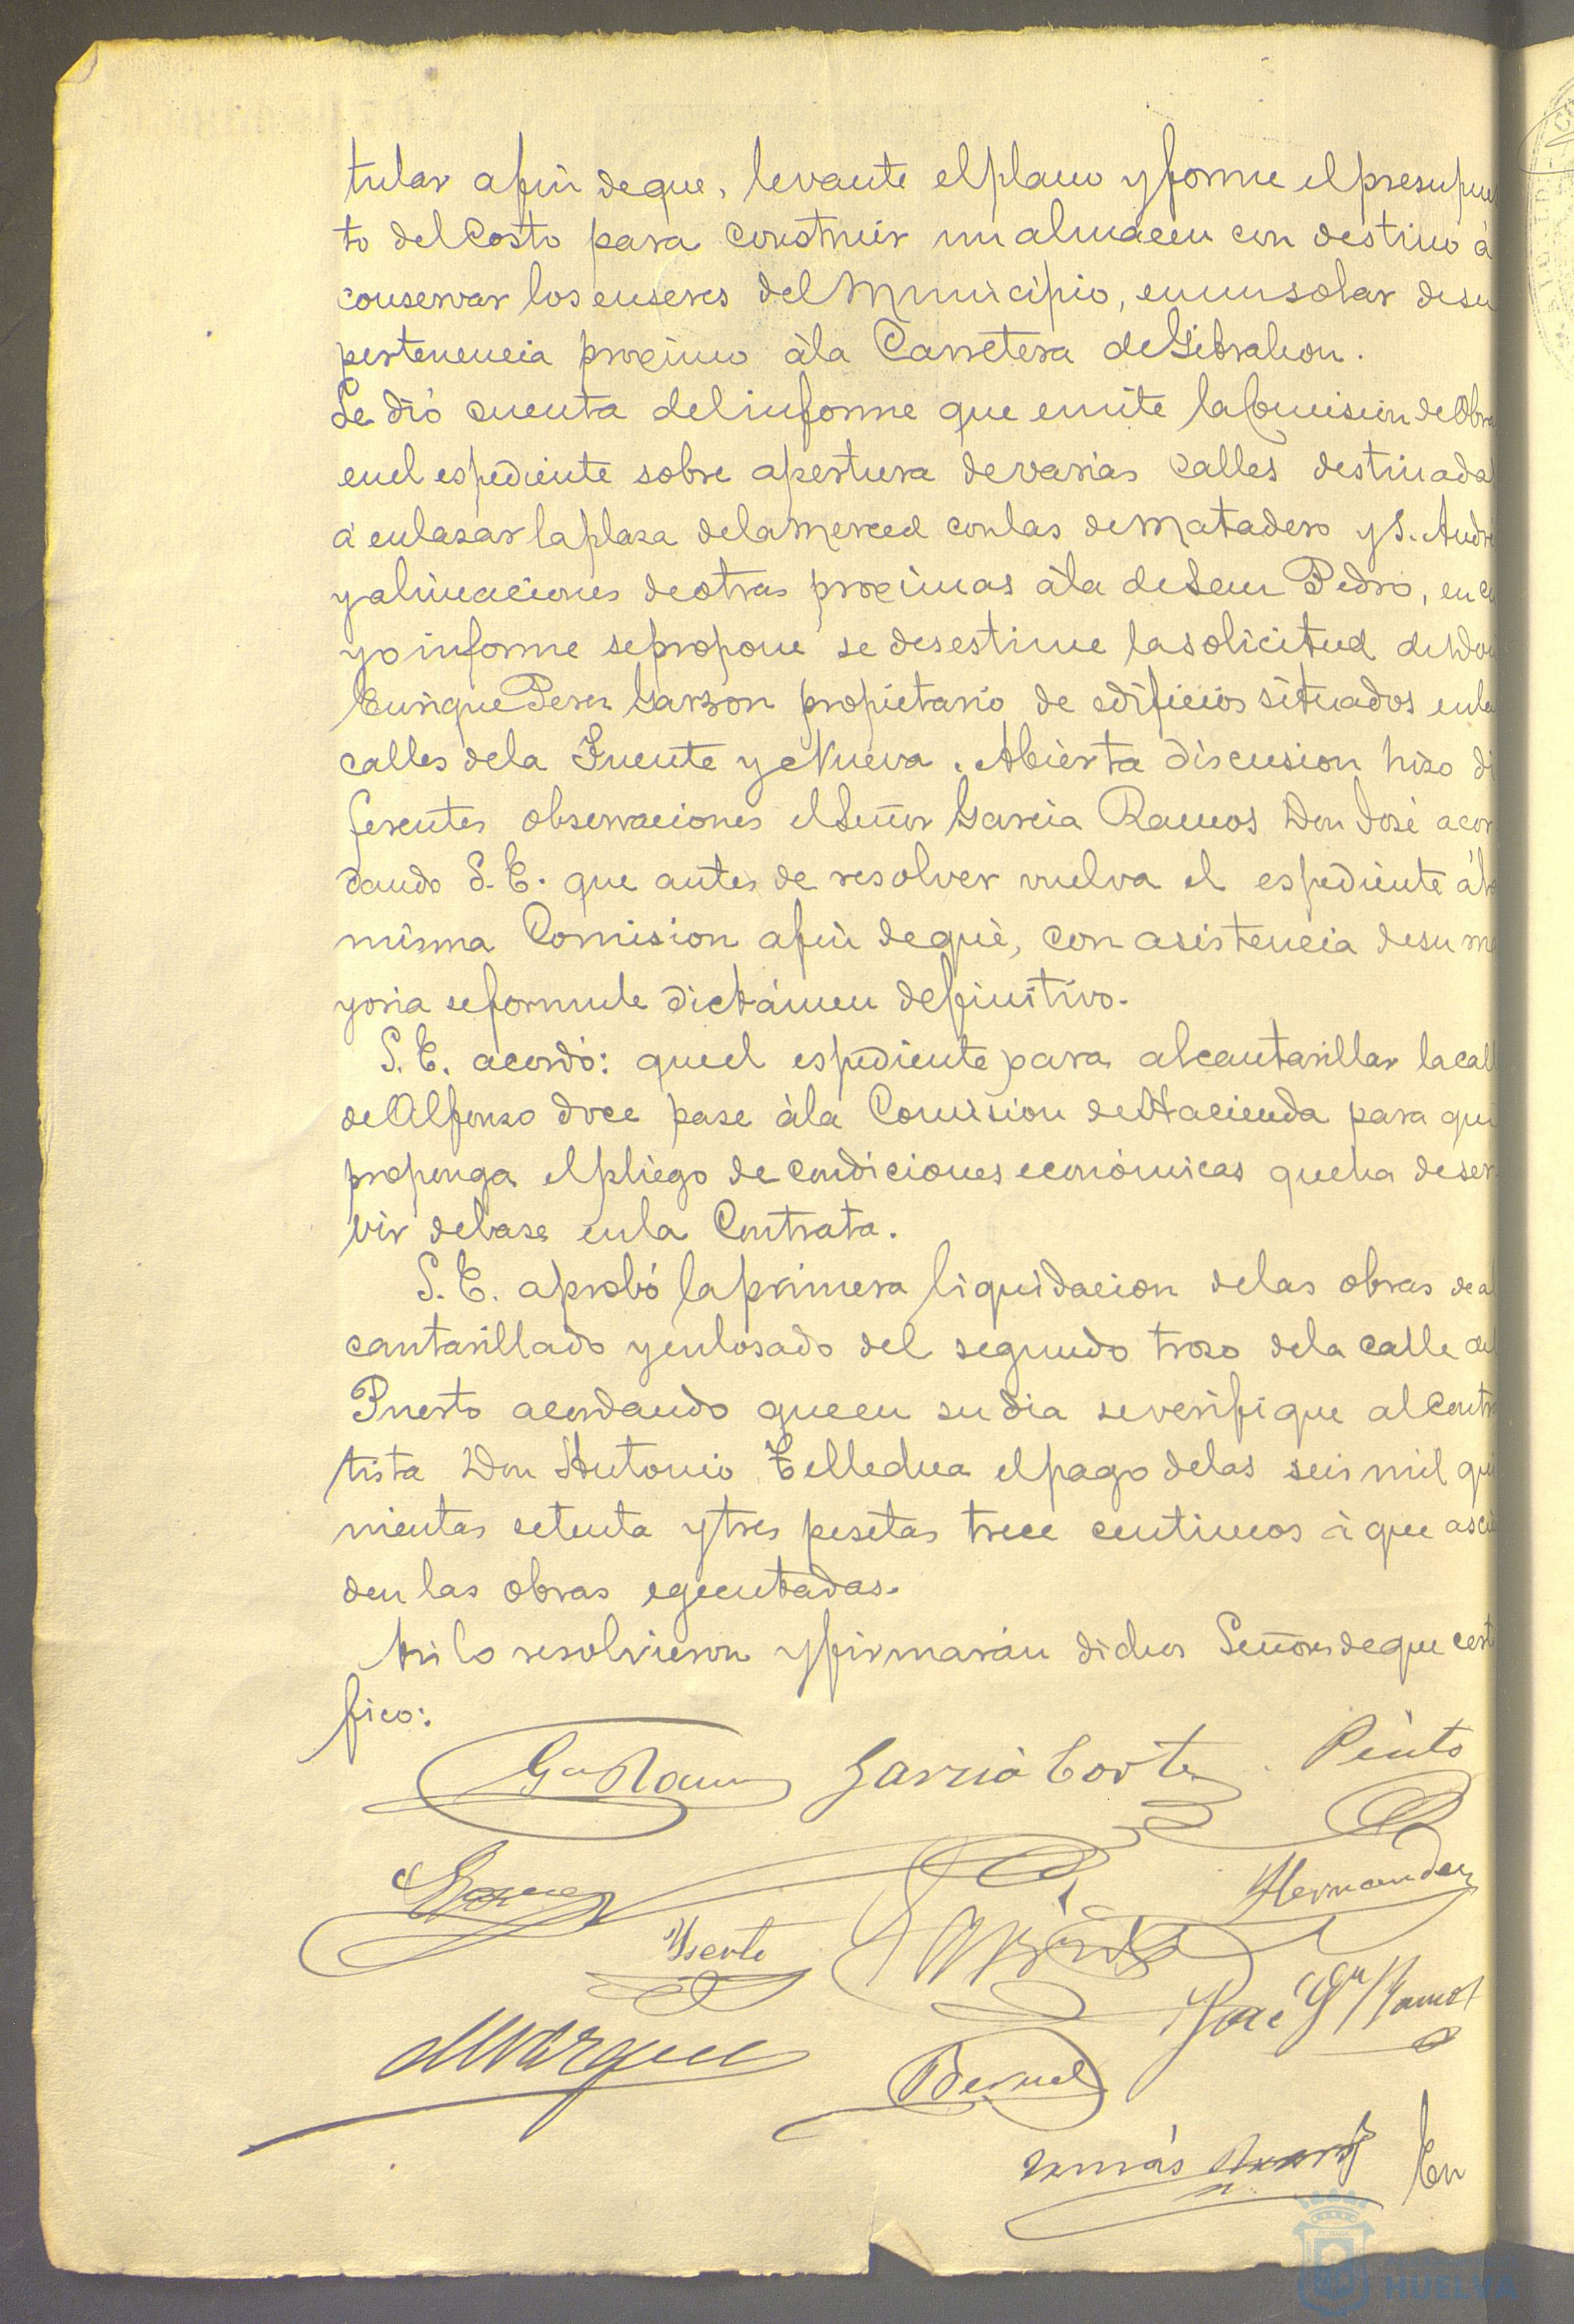 tular a fin de que, levante el plano y forme el presupues
to del Costo para construir un almacen con destino á
conservar los enseres del Municipio, en un solar de su
pertenencia proximo á la Carretera de Gibraleon.
Se dió cuenta del informe que emite la Comision de Obra
en el espediente sobre apertura de varias calles destinada
á enlazar la plaza de la Merced con las de Matadero y S. Andre
y alineaciones de otras proximas á la de San Pedro, en cu
yo informe se propone se desestime la solicitud de Don
Enrique Perez Garzon propietario de edificios situados en la
calles de la Fuente y Nueva. Abierta discusion hizo di
ferentes observaciones el Señor Garcia Ramos Don José acor
dando S. E. que antes de resolver vuelva el espediente á la
misma Comision a fin de que, con asistencia de su ma
yoria se formule dictámen definitivo.
S. E. acordó: que el espediente para alcantarillar la call
de Alfonso doce pase á la Comision de Hacienda para que
proponga el pliego de condiciones económicas que ha de ser
vir de base en la Contrata.
S. E. aprobó la primera liquidacion de las obras de al
cantarillado y enlosado del segundo trozo de la calle del
Puerto acordando que en su dia se verifique al Contra
tista Don Antonio Tellechea el pago de las seis mil qui
nientas setenta y tres pesetas trece centimos á que ascien
den las obras egecutadas.
Asi lo resolvieron y firmarán dichos Señores de que certi
fico:
Ga Ramos García Cortes Pinto
Hernandez
Yserte
José Ga Ramos
Marquez
Bernal
Tomás
En
HUELVA